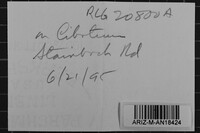 RLG 20800A
on Cibotium
Stainback Rd
6/21/95
ARIZ-M-AN18424